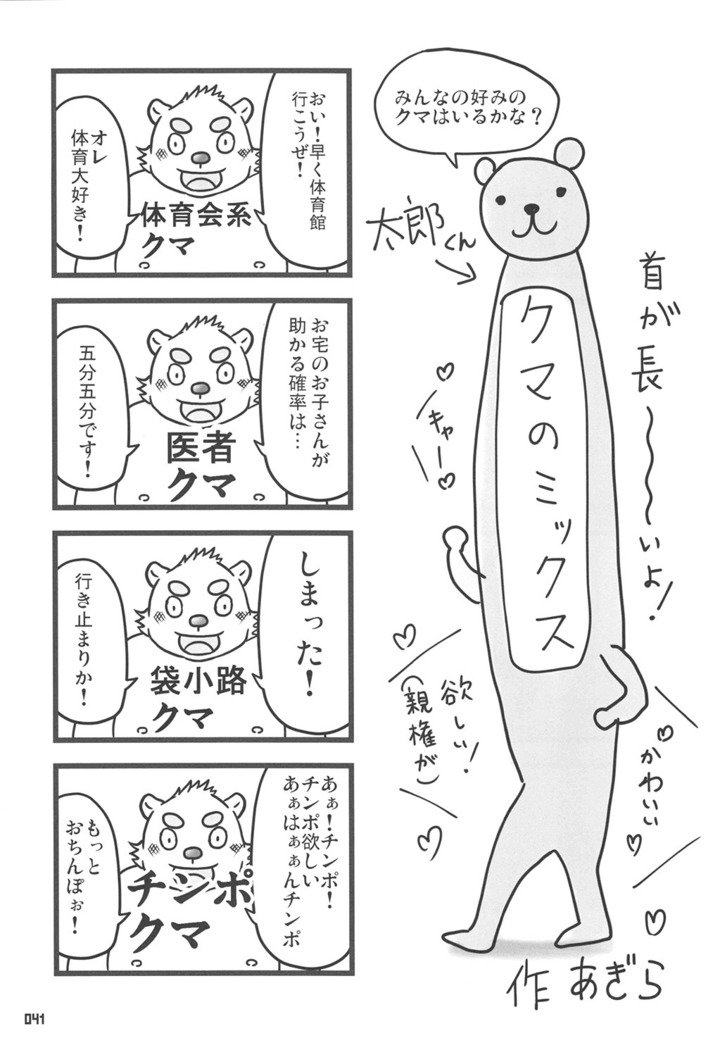 みんなの好みの
クマはいるかな？
太郎くん
首が長〜〜〜いよ！
クマのミックス
キャー
欲しい！
（親権が）
かわいい
作 あぎら
おい！早く体育館
行こうぜ！
オレ
体育大好き！
体育会系
クマ
お宅のお子さんが
助かる確率は…
五分五分です！
医者
クマ
しまった！
行き止まりか！
袋小路
クマ
あぁ！チンポ！
チンポ欲しい
あぁはぁぁんチンポ
もっと
おちんぽぉ！
チンポ
クマ
041